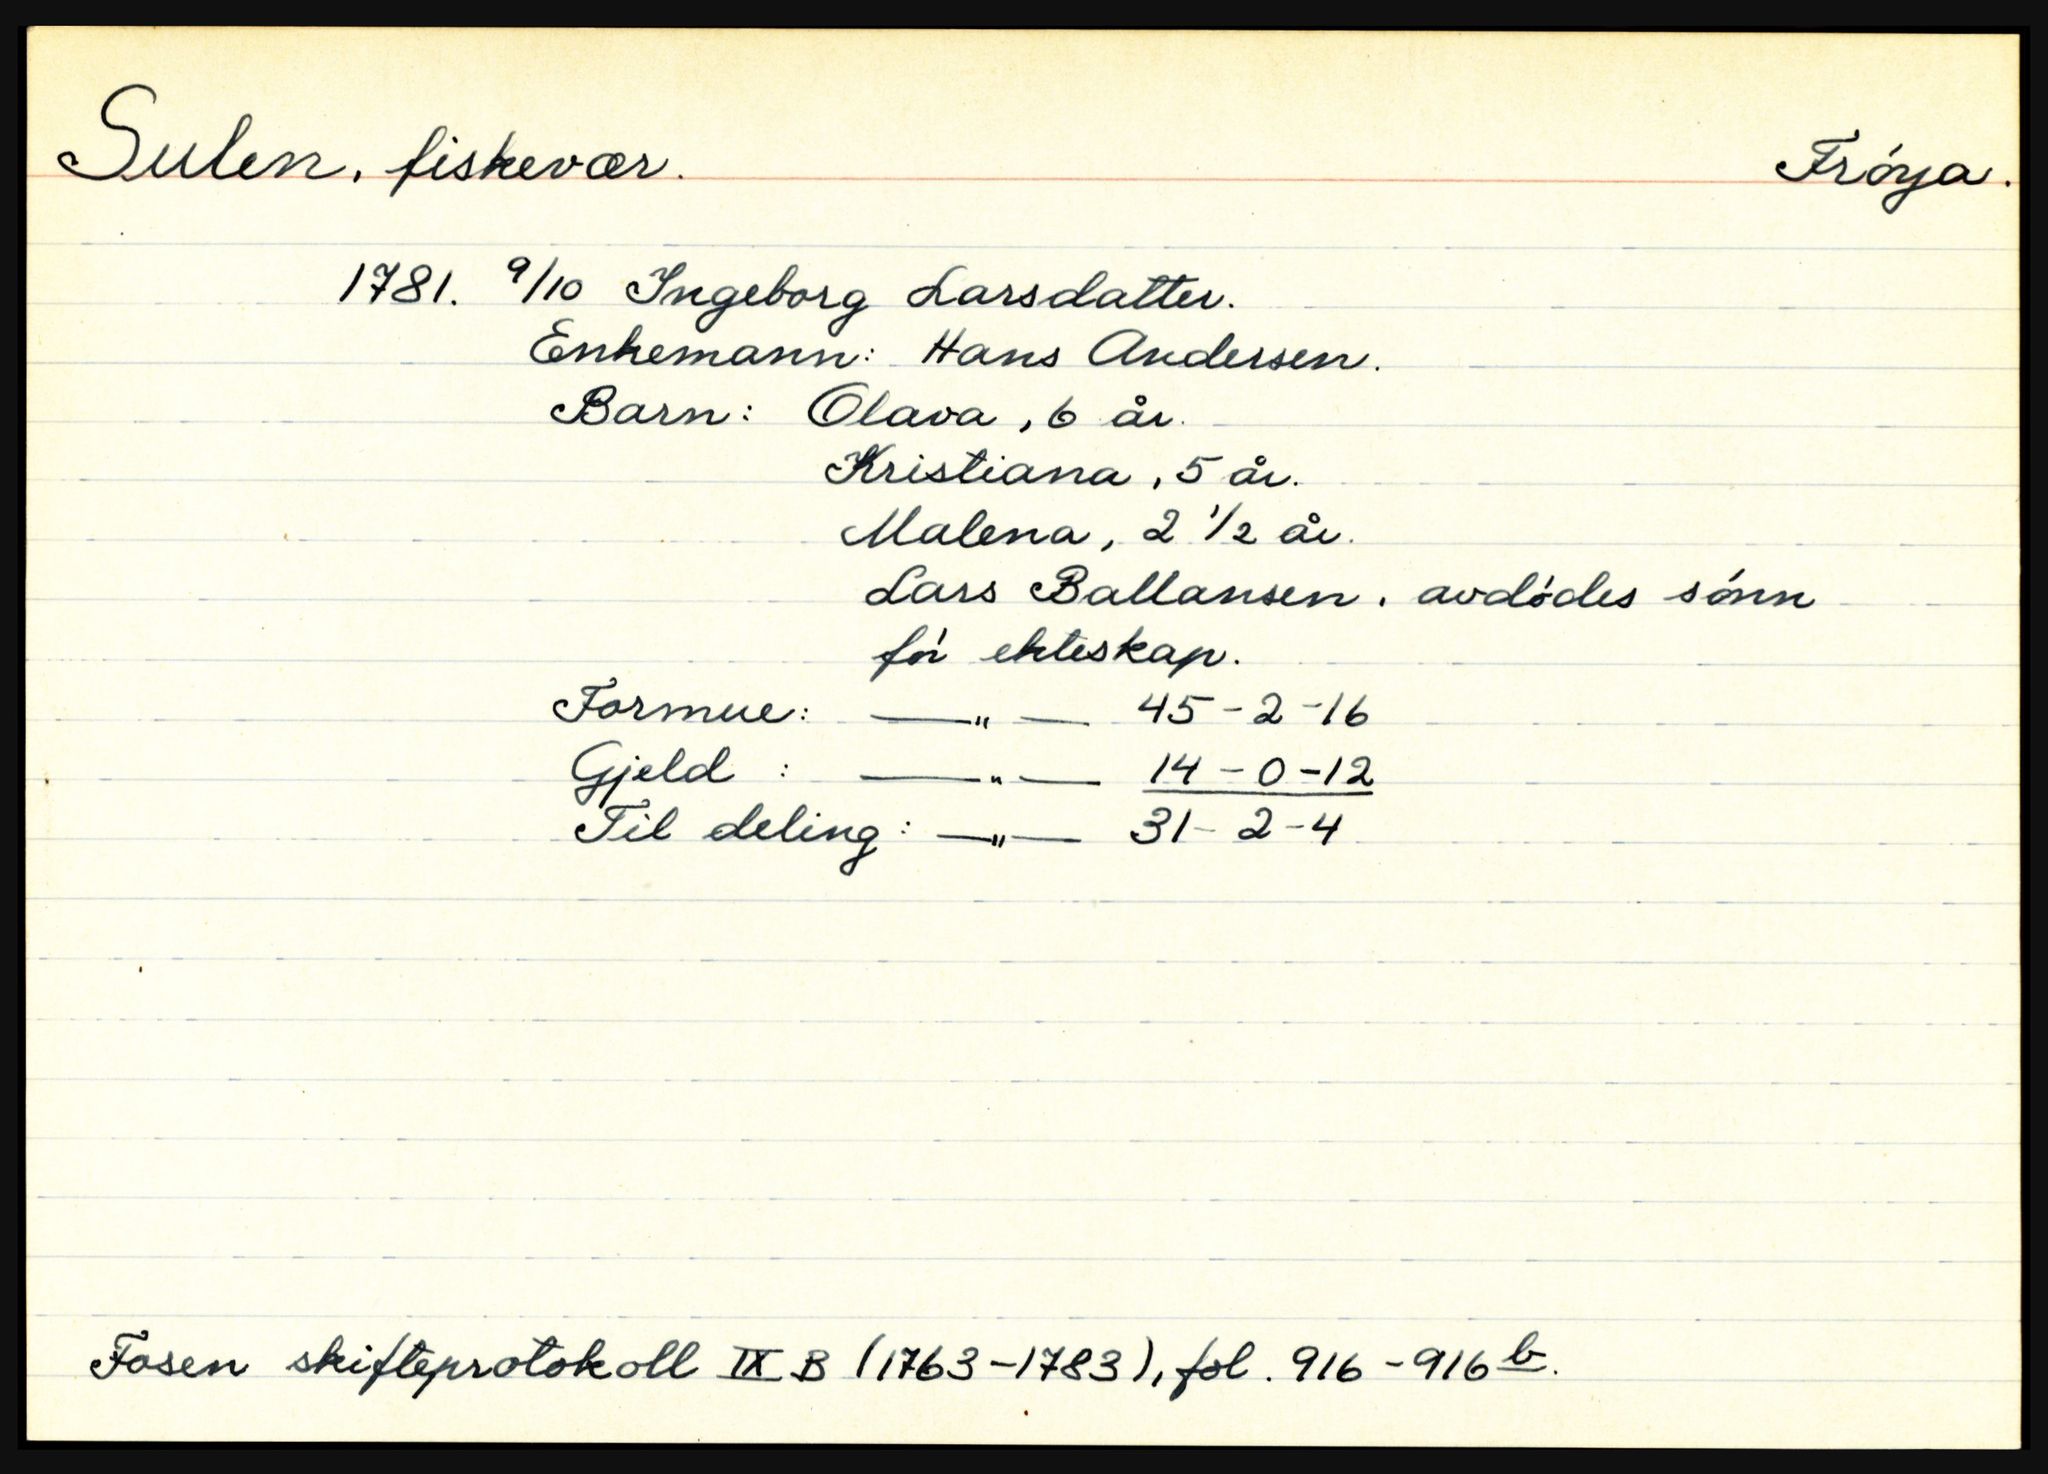 Sulen, fiskevær. Frøya.
1781. 9/10 Ingeborg Larsdatter.
Enkemann: Hans Andersen.
Barn: Olava, 6 år.
Kristiana, 5 år.
Malena, 2 1/2 år.
Lars Ballansen, avdødes sønn
før ekteskap.
Formue: —"— 45-2-16
Gjeld : —"— 14-0-12
Til deling: —"— 31-2-4
Fosen skifteprotokoll IX B (1763-1783), fol. 916-916 b.